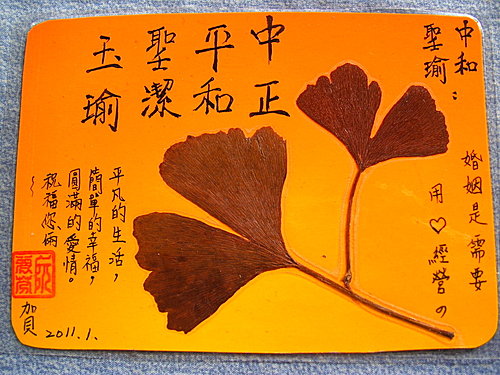 中和
聖瑜：
婚姻是需要
用♡經營的
中正
平和
聖潔
玉瑜
平凡的生活，
簡單的幸福，
圓滿的愛情。
祝福您倆
～
賀
2011.1.